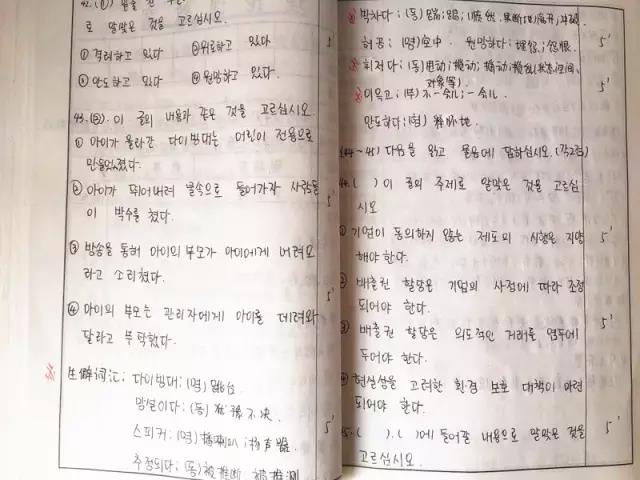 로 알맞은 것을 고르십시오.
① 격려하고 있다 ② 위로하고 있다
③ 안도하고 있다 ④ 원망하고 있다.
43. (②). 이 글의 내용과 같은 것을 고르십시오.
① 아이가 올라간 다이빙대는 어린이 전용으로
만들어졌다.
② 아이가 뛰어내려 물속으로 들어가자 사람들
이 박수를 쳤다.
③ 방송을 통해 아이의 부모가 아이에게 내려오
라고 소리쳤다.
5'
④ 아이의 부모는 관리자에게 아이를 데려와
달라고 부탁했다.
生僻词汇: 다이빙대: (명) 跳台
망설이다: (동) 犹豫不决
스피커: (명) 播喇叭; 扬声器
5'
추정되다: (동) 被推断, 被推测
박차다: (동) 踢;
5'
허공: (명) 空中. 원망하다: 埋怨; 怨恨.
휘젓다: (동)
이윽고: (부) 不一会儿; 一会儿.
5'
안도하다: (형) 释怀地
(44~45) 다음을 읽고 물음에 답하십시오. (각2점)
44. ( ) 이 글의 주제로 알맞은 것을 고르십
시오
① 기업이 동의하지 않는 제도의 시행은 지양
5'
해야 한다.
② 배출권 할당은 기업의 사정에 따라 조정
되어야 한다.
5'
③ 배출권 할당은 의도적인 거래를 염두에
5'
두어야 한다.
④ 현실성을 고려한 환경 보호 대책이 마련
되어야 한다.
45. ( ). ( )에 들어갈 내용으로 알맞은 것을
5'
고르십시오.